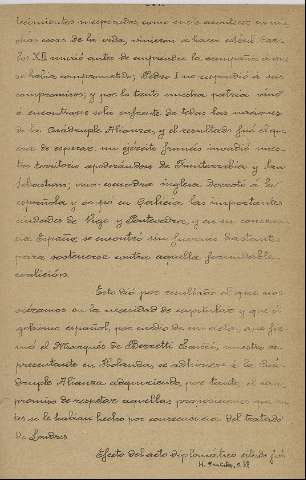 tecimientos inesperados, como suele acontecer en mu-
chas cosas de la vida, vinieron a hacer estéril. Car-
los XII murió antes de emprender la campaña a que
se había comprometido; Pedro I no cumplió sus
compromisos; y por lo tanto nuestra patria vino
a encontrarse sola enfrente de todas las naciones
de la Cuádruple Alianza, y el resultado fué el que
era de esperar. Un ejército francés invadió nues-
tro territorio apoderándose de Fuenterrabía y San
Sebastian; una escuadra inglesa derrotó a la
española y ocupó en Galicia las importantes
ciudades de Vigo y Pontevedra, y en su consecuen-
cia España se encontró sin fuerzas bastantes
para sostenerse contra aquella formidable
coalición.
Esto dió por resultado el que nos
viéramos en la necesidad de capitular y que el
gobierno español, por medio de un acta, que fir-
mó el Marqués de Berretti Landi, nuestro re-
presentante en Holanda, se adhiriese a la Cuá-
druple Alianza adquiriendo, por tanto, el com-
promiso de respetar aquellas proposiciones que an-
tes se le habían hecho por consecuencia del tratado
de Londres
Efecto del acto diplomático citado fué